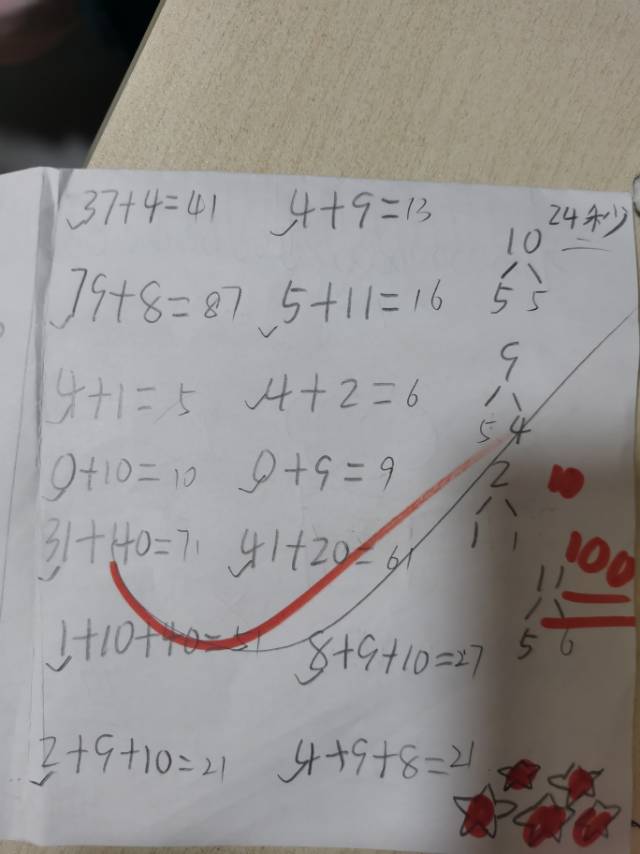 37+4=41 4+9=13 24秒
10
79+8=87 5+11=16 5 5
9
4+1=5 4+2=6 5 4
0+10=10 0+9=9 2
31+40=71 41+20=61 1 1
100
11
1+10+40=51 8+9+10=27 5 6
2+9+10=21 4+9+8=21